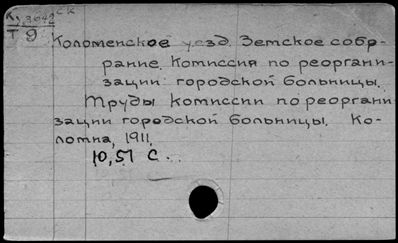 Ку 3042 СК
Т 9
Коломенское уезд. Земское собр-
рание. Комиссия по реоргани-
зации городской больницы.
Труды Комиссии по реоргани
зации городской больницы. Ко-
ломна, 1911.
10,51 С...